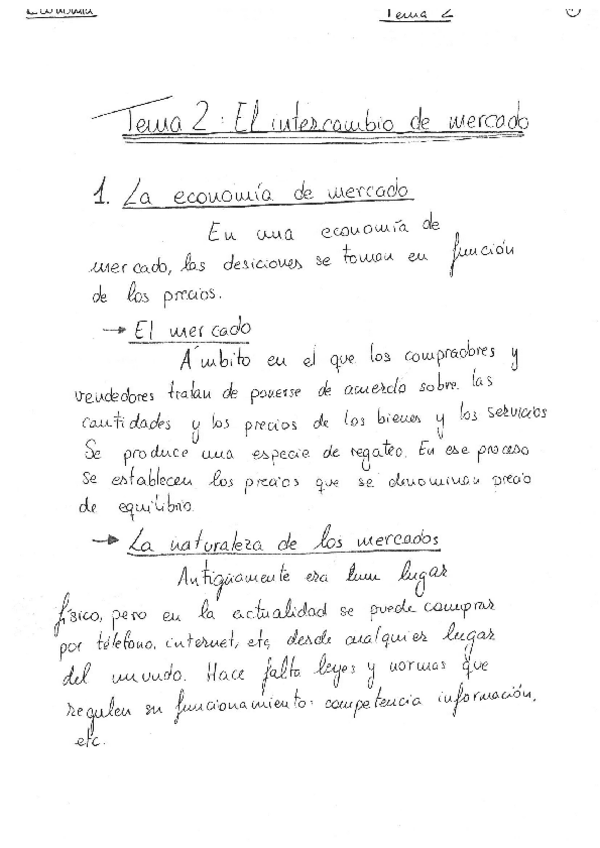 Economía Tema 2
Tema 2: El intercambio de mercado
1. La economía de mercado
En una economía de
mercado, las desiciones se toman en función
de los precios.
→ El mercado
Ámbito en el que los compradores y
vendedores tratan de ponerse de acuerdo sobre las
cantidades y los precios de los bienes y los servicios
Se produce una especie de regateo. En ese proceso
se establecen los precios que se denominan precio
de equilibrio.
→ La naturaleza de los mercados
Antigüamente era lugar
físico, pero en la actualidad se puede comprar
por teléfono, internet, etc, desde cualquier lugar
del mundo. Hace falta leyes y normas que
regulen su funcionamiento: competencia información,
etc.